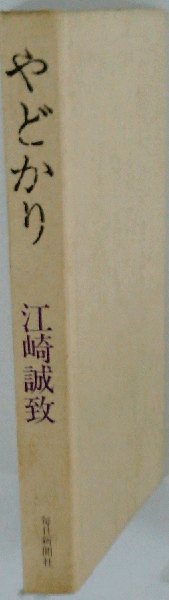 やどかり
江崎誠致
毎日新聞社